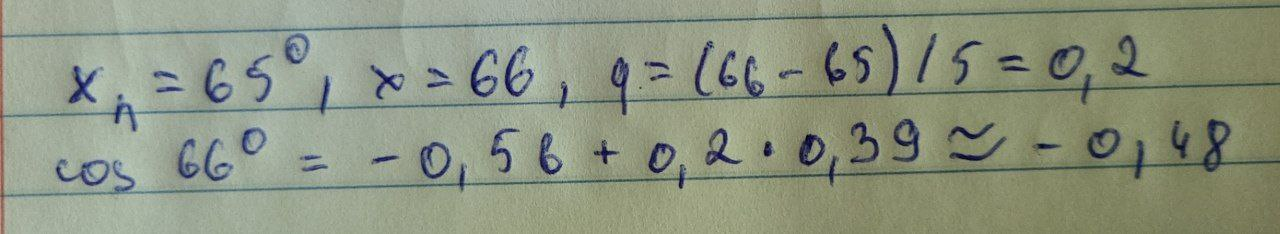 x₁ = 65⁰, x = 66, q = (66 - 65) / 5 = 0,2
cos 66⁰ = - 0,56 + 0,2 · 0,39 ≃ - 0,48